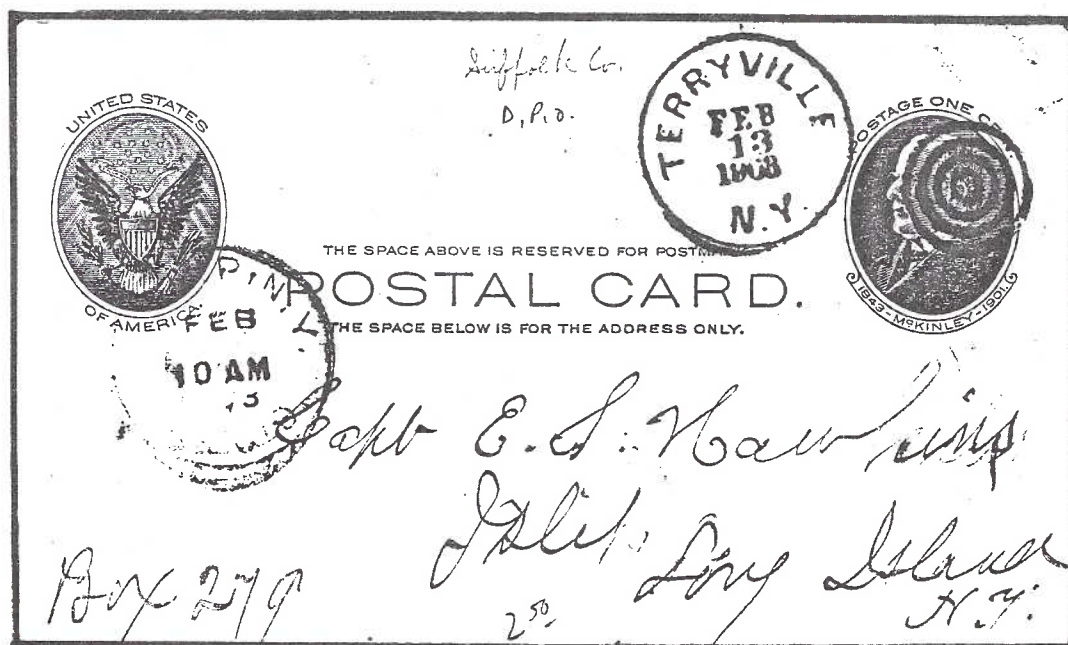 Suffolk Co.
D.P.O.
TERRYVILLE
FEB
13
1908
N.Y.
UNITED STATES
OF AMERICA.
POSTAGE ONE
1843-McKINLEY-1901.
THE SPACE ABOVE IS RESERVED FOR POSTM
POSTAL CARD.
THE SPACE BELOW IS FOR THE ADDRESS ONLY.
P, N.Y.
FEB
10 AM
13
Capt E. S. Hawkins
Islip
Long Island
N.Y.
Box 279
2 50